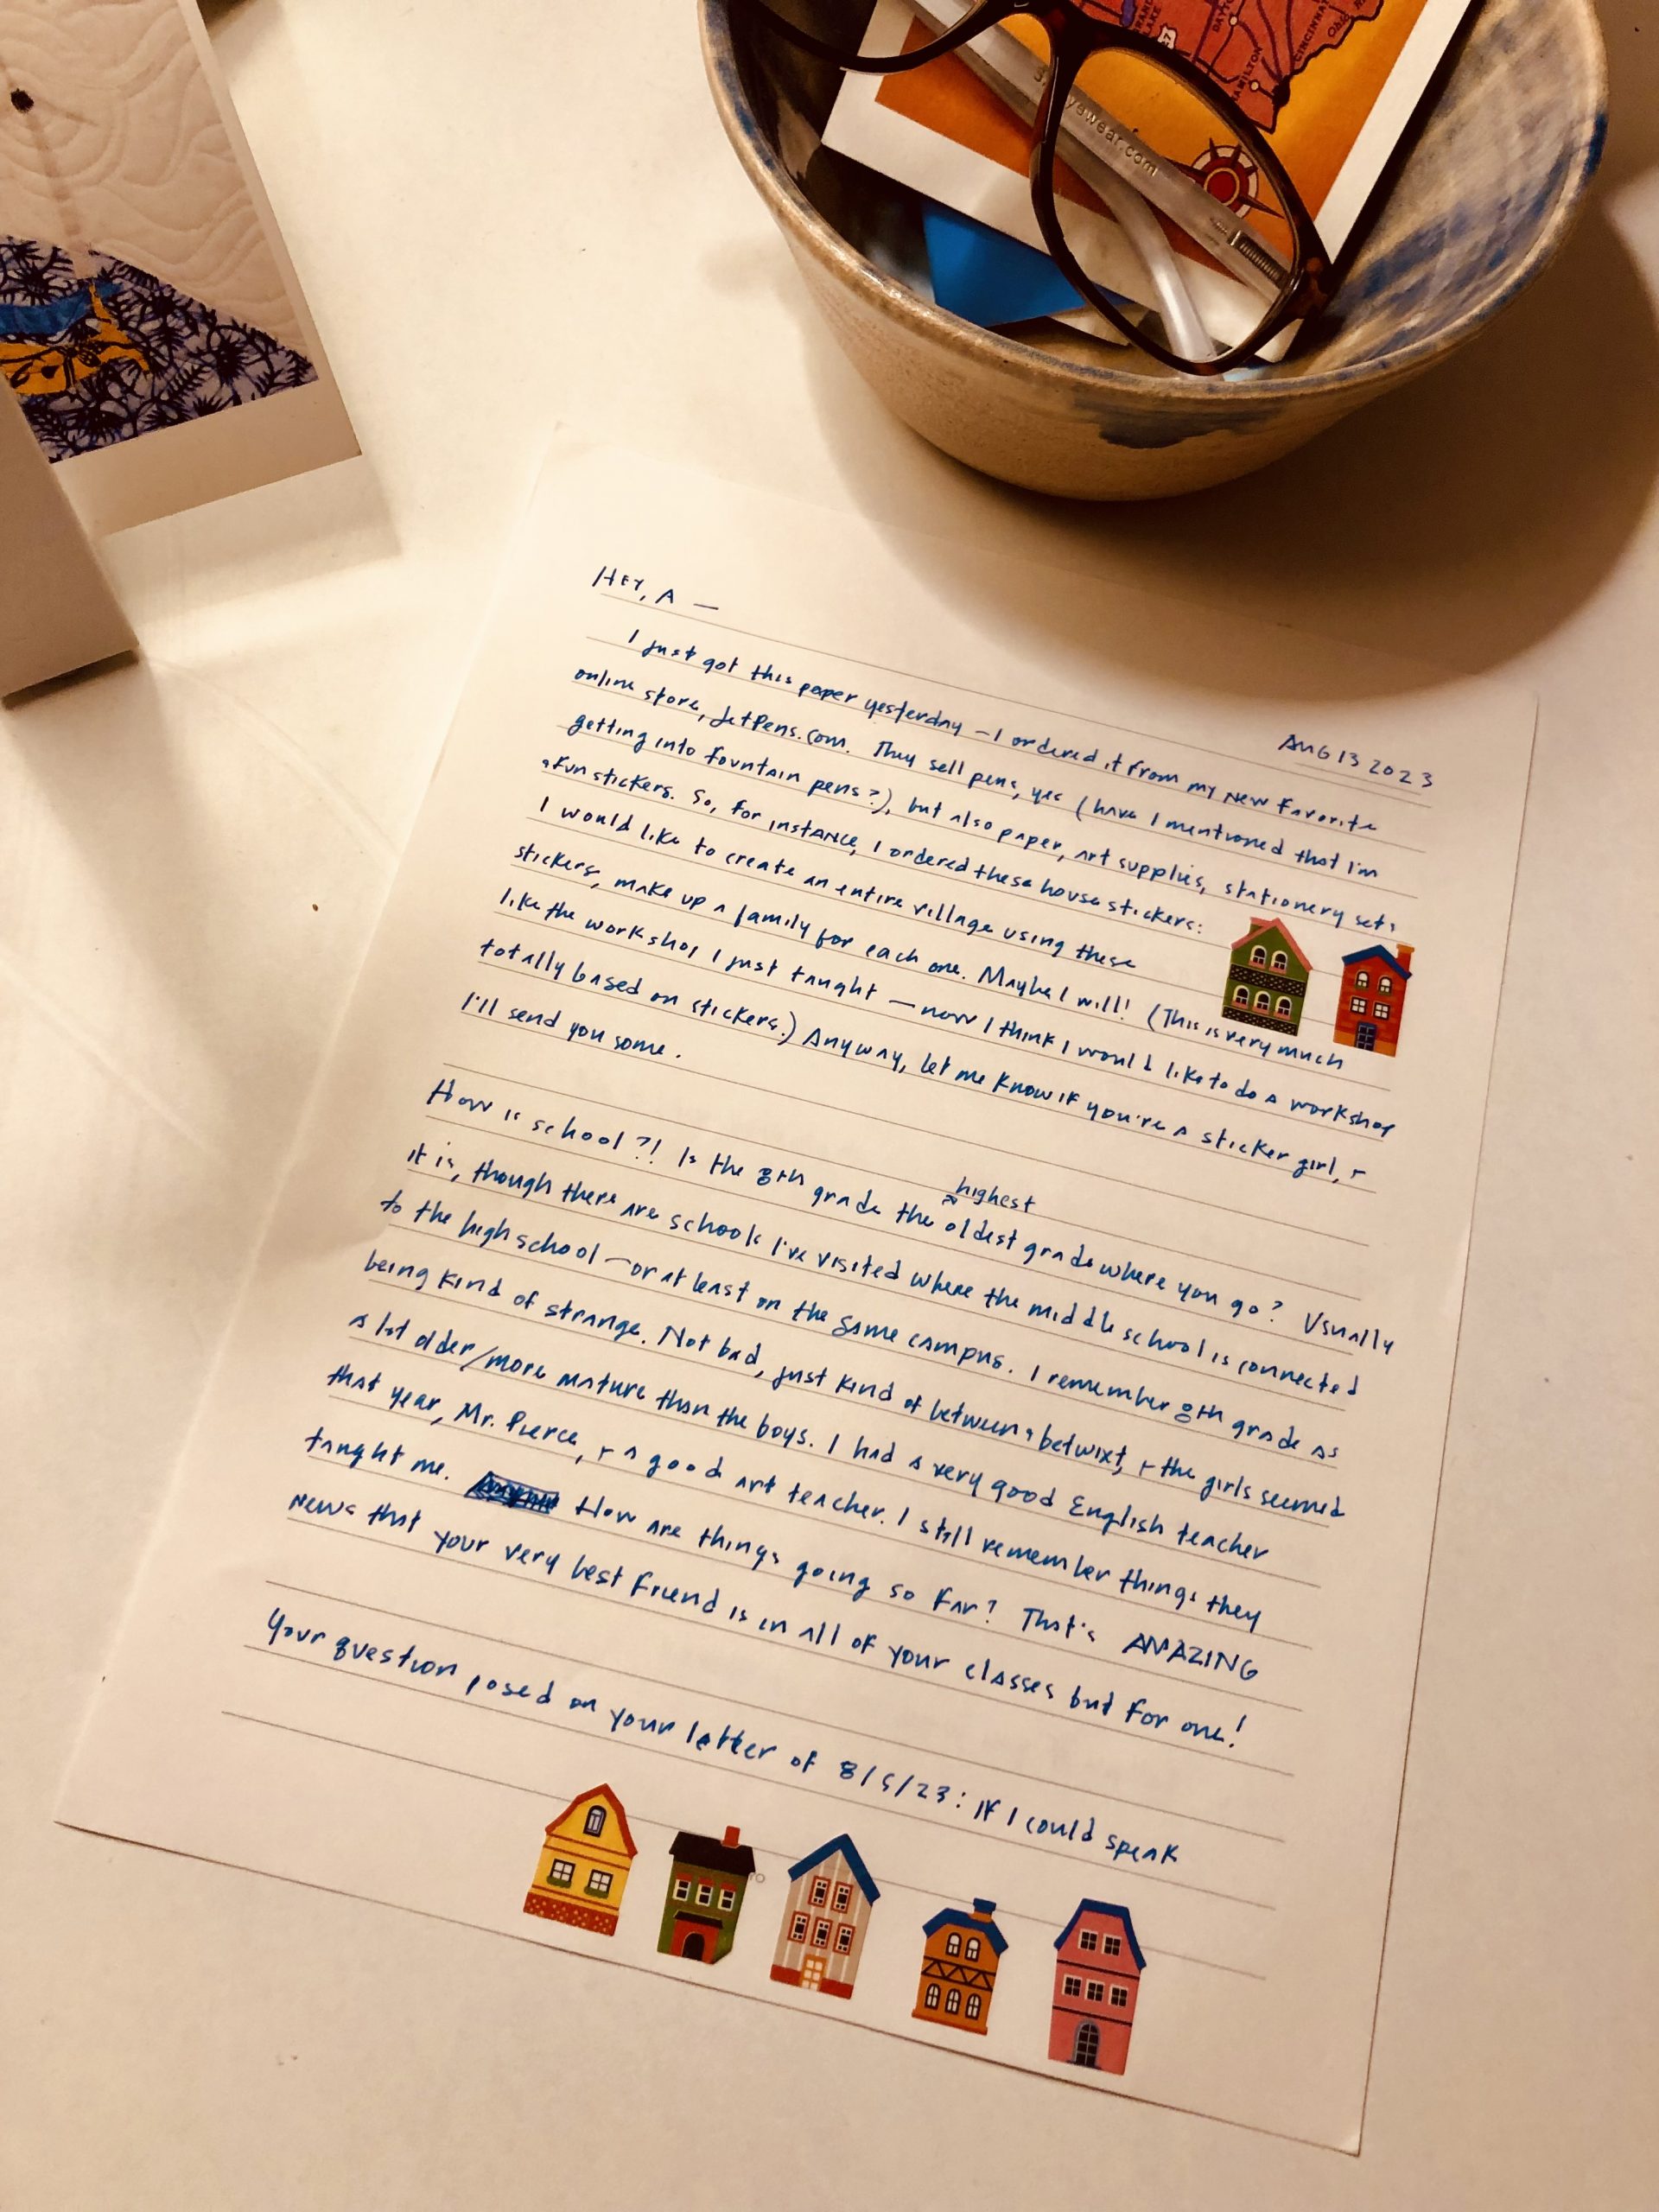 RAND
LAKE
DAYTON
CINCINNATI
HAMILTON
eyewear.com
HEY, A —
AUG 13 2023
I just got this paper yesterday – I ordered it from my new favorite
online store, JetPens.com. They sell pens, yes (have I mentioned that I'm
getting into fountain pens?), but also paper, art supplies, stationery sets
& fun stickers. So, for instance, I ordered these house stickers:
I would like to create an entire village using these
stickers, make up a family for each one. Maybe I will! (This is very much
like the workshop I just taught — now I think I would like to do a workshop
totally based on stickers.) Anyway, let me know if you're a sticker girl, +
I'll send you some.
highest
How is school?! Is the 8th grade the oldest grade where you go? Usually
it is, though there are schools I've visited where the middle school is connected
to the high school — or at least on the same campus. I remember 8th grade as
being kind of strange. Not bad, just kind of between & betwixt, + the girls seemed
a lot older/more mature than the boys. I had a very good English teacher
that year, Mr. Pierce, + a good art teacher. I still remember things they
taught me. How are things going so far? That's AMAZING
news that your very best friend is in all of your classes but for one!
Your question posed on your letter of 8/5/23: If I could speak